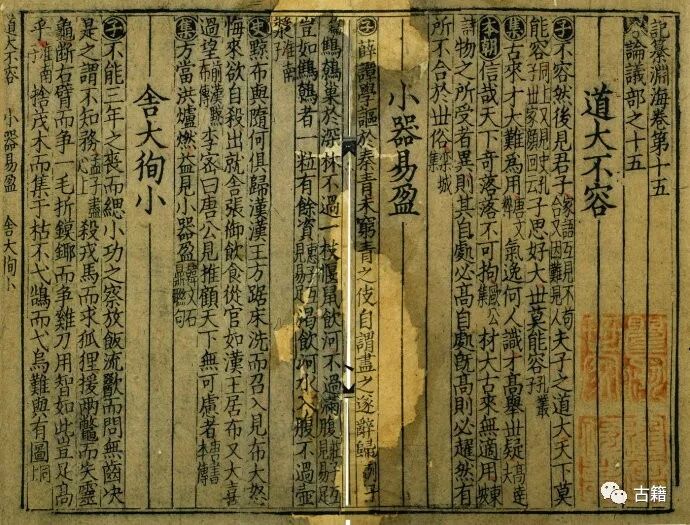 記纂淵海卷第十五
論議部之十五
道大不容
子不容然後見君子家語互見不苟合又因難見人夫子之道大天下莫
能容同上又見史孔子世家顔回云子思好大世莫能容子孔叢
集古來才大難為用唐文氣逸何人識才高舉世疑高達夫
本朝信哉天下奇落落不可拘歐公集材大古來無適用
詩物之所受者異則其自處必高自處旣高則必趯然有
所不合於世俗欒城集
小器易盈
子薛譚學謳於秦青未窮青之伎自謂盡之遂辭歸列子
鷦鷯巢於深林不過一枝偃鼠飲河不過滿腹莊子互見易足
豈如鷦鷯者一粒有餘資渴飲河水入腹不過壺
漿淮南子
史黥布與隋何俱歸漢漢王方踞床洗而召入見布大怒
悔來欲自殺出就舍張御飲食從官如漢王居布又大喜
過望前漢黥布傳李密曰唐公見推顧天下無可慮者唐書本傳
集方當洪爐燃益見小器盈韓文石鼎聯句
舍大徇小
子不能三年之喪而緦小功之察放飯流歠而問無齒決
是之謂不知務孟子盡心上殺戎馬而求狐狸援兩鼈而失靈
龜斷右臂而爭一毛折鏌鎁而爭錐刀用智如此豈足高
乎淮南子捨茂木而集于枯不弋鵠而弋烏難與有圖同上
道大不容 小器易盈 舍大徇小
古籍